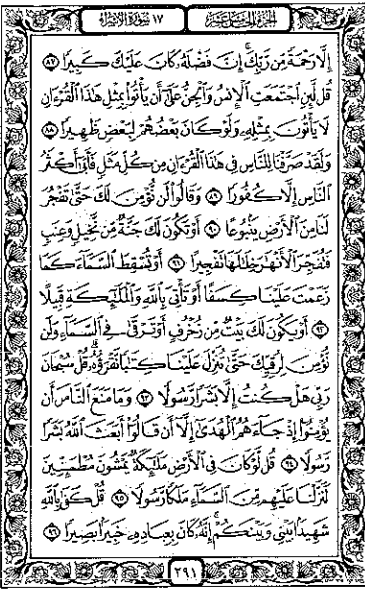 الجزء الخامس عشر
١٧ سورة الإسراء
إِلَّا رَحْمَةً مِّن رَّبِّكَ ۚ إِنَّ فَضْلَهُۥ كَانَ عَلَيْكَ كَبِيرًا ۝٨٧
قُل لَّئِنِ ٱجْتَمَعَتِ ٱلْإِنسُ وَٱلْجِنُّ عَلَىٰٓ أَن يَأْتُوا۟ بِمِثْلِ هَٰذَا ٱلْقُرْءَانِ
لَا يَأْتُونَ بِمِثْلِهِۦ وَلَوْ كَانَ بَعْضُهُمْ لِبَعْضٍ ظَهِيرًا ۝٨٨
وَلَقَدْ صَرَّفْنَا لِلنَّاسِ فِى هَٰذَا ٱلْقُرْءَانِ مِن كُلِّ مَثَلٍ فَأَبَىٰٓ أَكْثَرُ
ٱلنَّاسِ إِلَّا كُفُورًا ۝٨٩ وَقَالُوا۟ لَن نُّؤْمِنَ لَكَ حَتَّىٰ تَفْجُرَ
لَنَا مِنَ ٱلْأَرْضِ يَنۢبُوعًا ۝٩٠ أَوْ تَكُونَ لَكَ جَنَّةٌ مِّن نَّخِيلٍ وَعِنَبٍ
فَتُفَجِّرَ ٱلْأَنْهَٰرَ خِلَٰلَهَا تَفْجِيرًا ۝٩١ أَوْ تُسْقِطَ ٱلسَّمَآءَ كَمَا
زَعَمْتَ عَلَيْنَا كِسَفًا أَوْ تَأْتِىَ بِٱللَّهِ وَٱلْمَلَٰٓئِكَةِ قَبِيلًا
۝٩٢ أَوْ يَكُونَ لَكَ بَيْتٌ مِّن زُخْرُفٍ أَوْ تَرْقَىٰ فِى ٱلسَّمَآءِ وَلَن
نُّؤْمِنَ لِرُقِيِّكَ حَتَّىٰ تُنَزِّلَ عَلَيْنَا كِتَٰبًا نَّقْرَؤُهُۥ ۗ قُلْ سُبْحَانَ
رَبِّى هَلْ كُنتُ إِلَّا بَشَرًا رَّسُولًا ۝٩٣ وَمَا مَنَعَ ٱلنَّاسَ أَن
يُؤْمِنُوٓا۟ إِذْ جَآءَهُمُ ٱلْهُدَىٰٓ إِلَّآ أَن قَالُوٓا۟ أَبَعَثَ ٱللَّهُ بَشَرًا
رَّسُولًا ۝٩٤ قُل لَّوْ كَانَ فِى ٱلْأَرْضِ مَلَٰٓئِكَةٌ يَمْشُونَ مُطْمَئِنِّينَ
لَنَزَّلْنَا عَلَيْهِم مِّنَ ٱلسَّمَآءِ مَلَكًا رَّسُولًا ۝٩٥ قُلْ كَفَىٰ بِٱللَّهِ
شَهِيدًۢا بَيْنِى وَبَيْنَكُمْ ۚ إِنَّهُۥ كَانَ بِعِبَادِهِۦ خَبِيرًۢا بَصِيرًا ۝٩٦
٢٩١